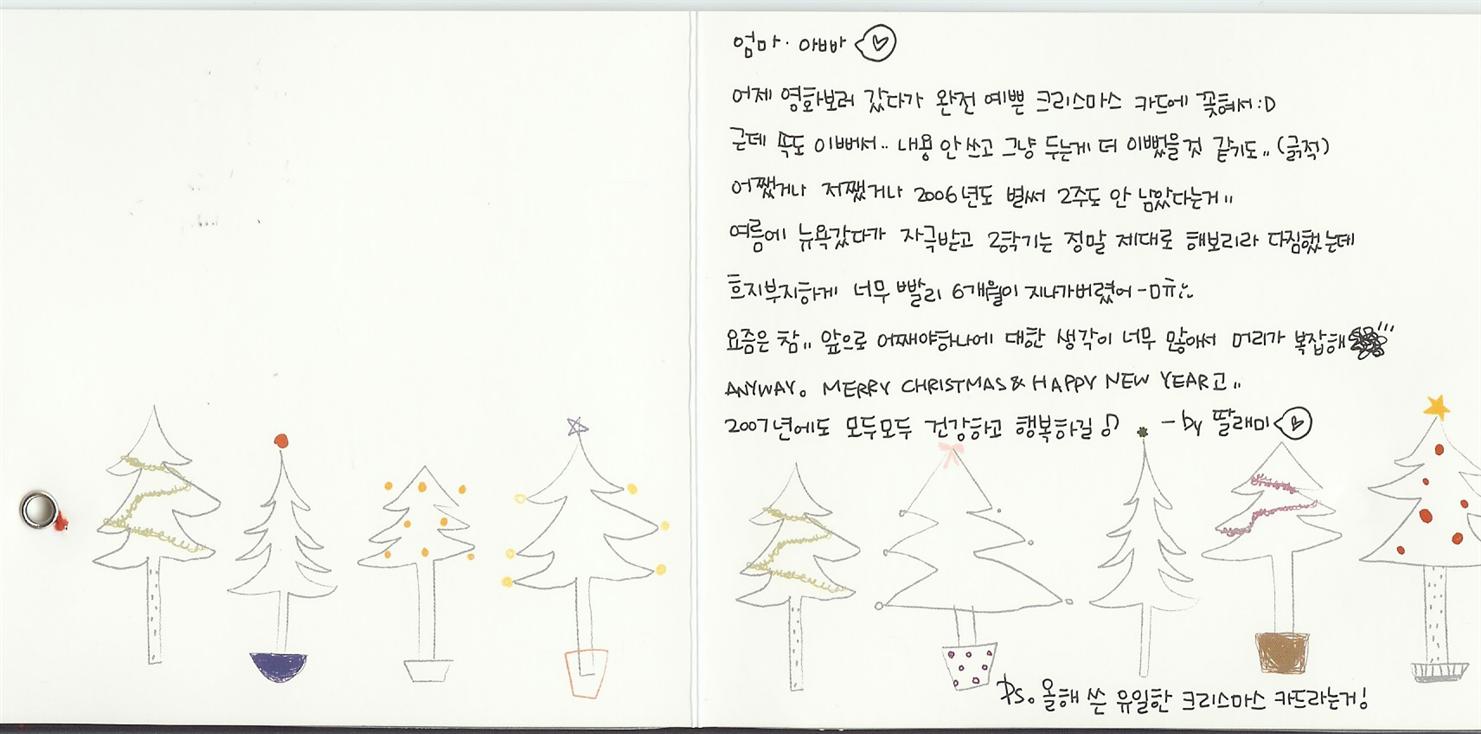 엄마. 아빠
어제 영화보러 갔다가 완전 예쁜 크리스마스 카드에 꽂혀서 :D
근데 속도 이뻐서.. 내용 안 쓰고 그냥 두는게 더 이뻤을것 같기도.. (긁적)
어쨌거나 저쨌거나 2006년도 벌써 2주도 안 남았다는거..
여름에 뉴욕갔다가 자극받고 2학기는 정말 제대로 해보리라 다짐했는데
흐지부지하게 너무 빨리 6개월이 지나가버렸어 -ㅁㅠ;;
요즘은 참.. 앞으로 어째야하나에 대한 생각이 너무 많아서 머리가 복잡해
ANYWAY. MERRY CHRISTMAS & HAPPY NEW YEAR고..
2007년에도 모두모두 건강하고 행복하길♪ - by 딸래미
Ps. 올해 쓴 유일한 크리스마스 카드라는거!